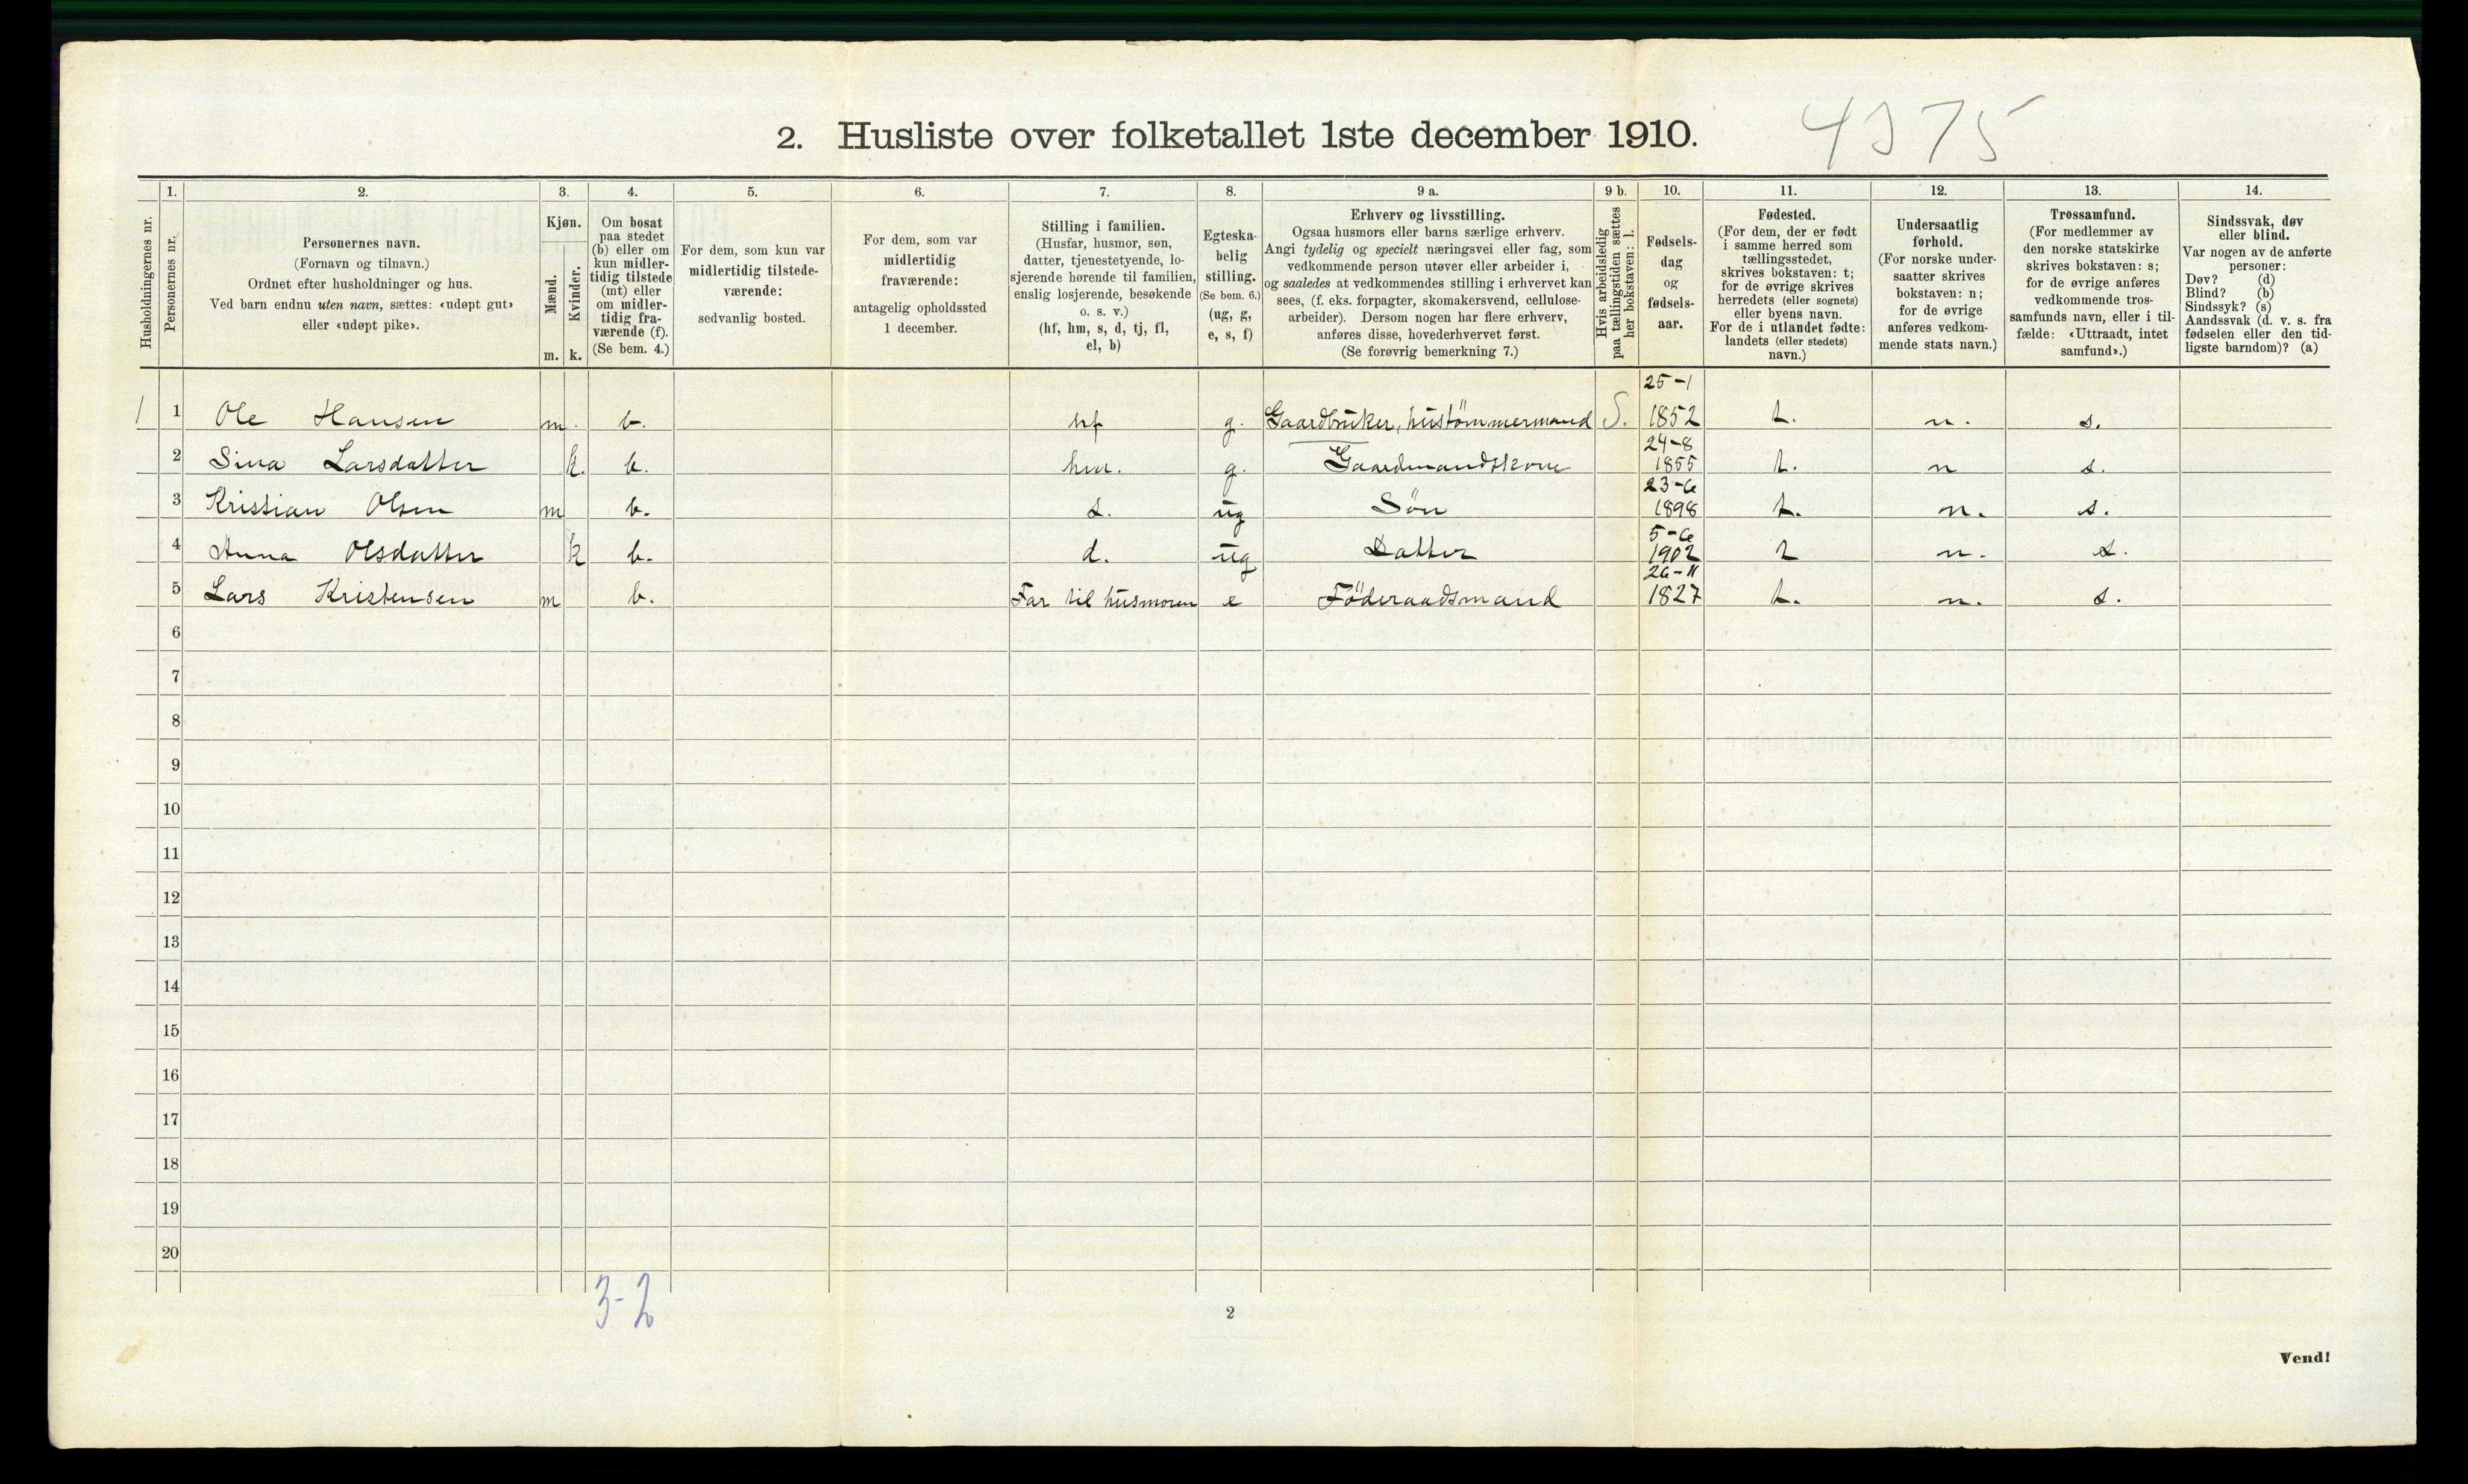 4375
2. Husliste over folketallet 1ste december 1910.
1. 2. 3. 4. 5. 6. 7. 8. 9 a. 9 b. 10. 11. 12. 13. 14.
Husholdningernes nr.
Personernes nr.
Personernes navn.
(Fornavn og tilnavn.)
Ordnet efter husholdninger og hus.
Ved barn endnu uten navn, sættes: «udøpt gut»
eller «udøpt pike».
Kjøn.
Mænd.
Kvinder.
m. k.
Om bosat
paa stedet
(b) eller om
kun midler-
tidig tilstede
(mt) eller
om midler-
tidig fra-
værende (f).
(Se bem. 4.)
For dem, som kun var
midlertidig tilstede-
værende:
sedvanlig bosted.
For dem, som var
midlertidig
fraværende:
antagelig opholdssted
1 december.
Stilling i familien.
(Husfar, husmor, søn,
datter, tjenestetyende, lo-
sjerende hørende til familien,
enslig losjerende, besøkende
o. s. v.)
(hf, hm, s, d, tj, fl,
el, b)
Egteska-
belig
stilling.
(Se bem. 6.)
(ug, g,
e, s, f)
Erhverv og livsstilling.
Ogsaa husmors eller barns særlige erhverv.
Angi tydelig og specielt næringsvei eller fag, som
vedkommende person utøver eller arbeider i,
og saaledes at vedkommendes stilling i erhvervet kan
sees, (f. eks. forpagter, skomakersvend, cellulose-
arbeider). Dersom nogen har flere erhverv,
anføres disse, hovederhvervet først.
(Se forøvrig bemerkning 7.)
Hvis arbeidsledig
paa tællingstiden sættes
her bokstaven: l.
Fødsels-
dag
og
fødsels-
aar.
Fødested.
(For dem, der er født
i samme herred som
tællingsstedet,
skrives bokstaven: t;
for de øvrige skrives
herredets (eller sognets)
eller byens navn.
For de i utlandet fødte:
landets (eller stedets)
navn.)
Undersaatlig
forhold.
(For norske under-
saatter skrives
bokstaven: n;
for de øvrige
anføres vedkom-
mende stats navn.)
Trossamfund.
(For medlemmer av
den norske statskirke
skrives bokstaven: s;
for de øvrige anføres
vedkommende tros-
samfunds navn, eller i til-
fælde: «Uttraadt, intet
samfund».)
Sindssvak, døv
eller blind.
Var nogen av de anførte
personer:
Døv? (d)
Blind? (b)
Sindssyk? (s)
Aandssvak (d. v. s. fra
fødselen eller den tid-
ligste barndom)? (a)
1 1 Ole Hansen m. b. hf g. Gaardbruker, hustømmermand S. 25-1 1852 t. n. s.
2 Sina Larsdatter k. b. hm. g. Gaardmandskone 24-8 1855 t. n s.
3 Kristian Olsen m b. s. ug Søn 23-6 1898 t. n. s.
4 Anna Olsdatter k b. d. ug Datter 5-6 1902 t n. s.
5 Lars Kristensen m b. Far til husmoren e Föderaadsmand 26-11 1827 t. n. s.
6
7
8
9
10
11
12
13
14
15
16
17
18
19
20
3-2
2
Vend!